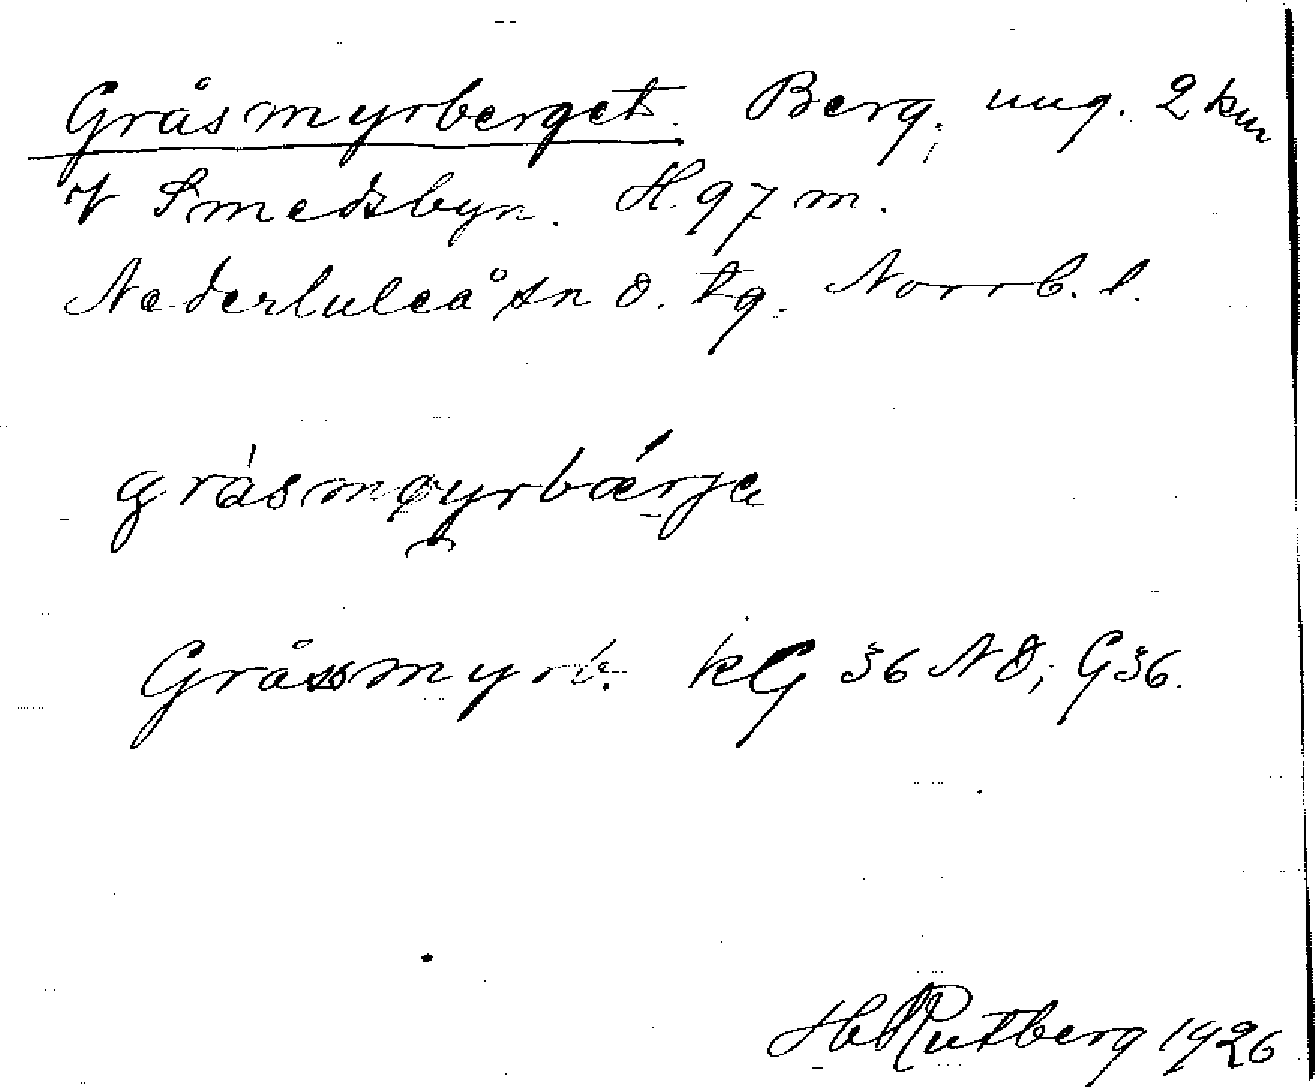 Gråsmyrberget. Berg, ung. 2 km
V Smedsbyn. H. 97 m.
Nederluleå sn o. tg. Norrb. l.
gràsmøyrbǽrja
Gråssmyrb. kG 36 NO; G36.
H Rutberg 1926